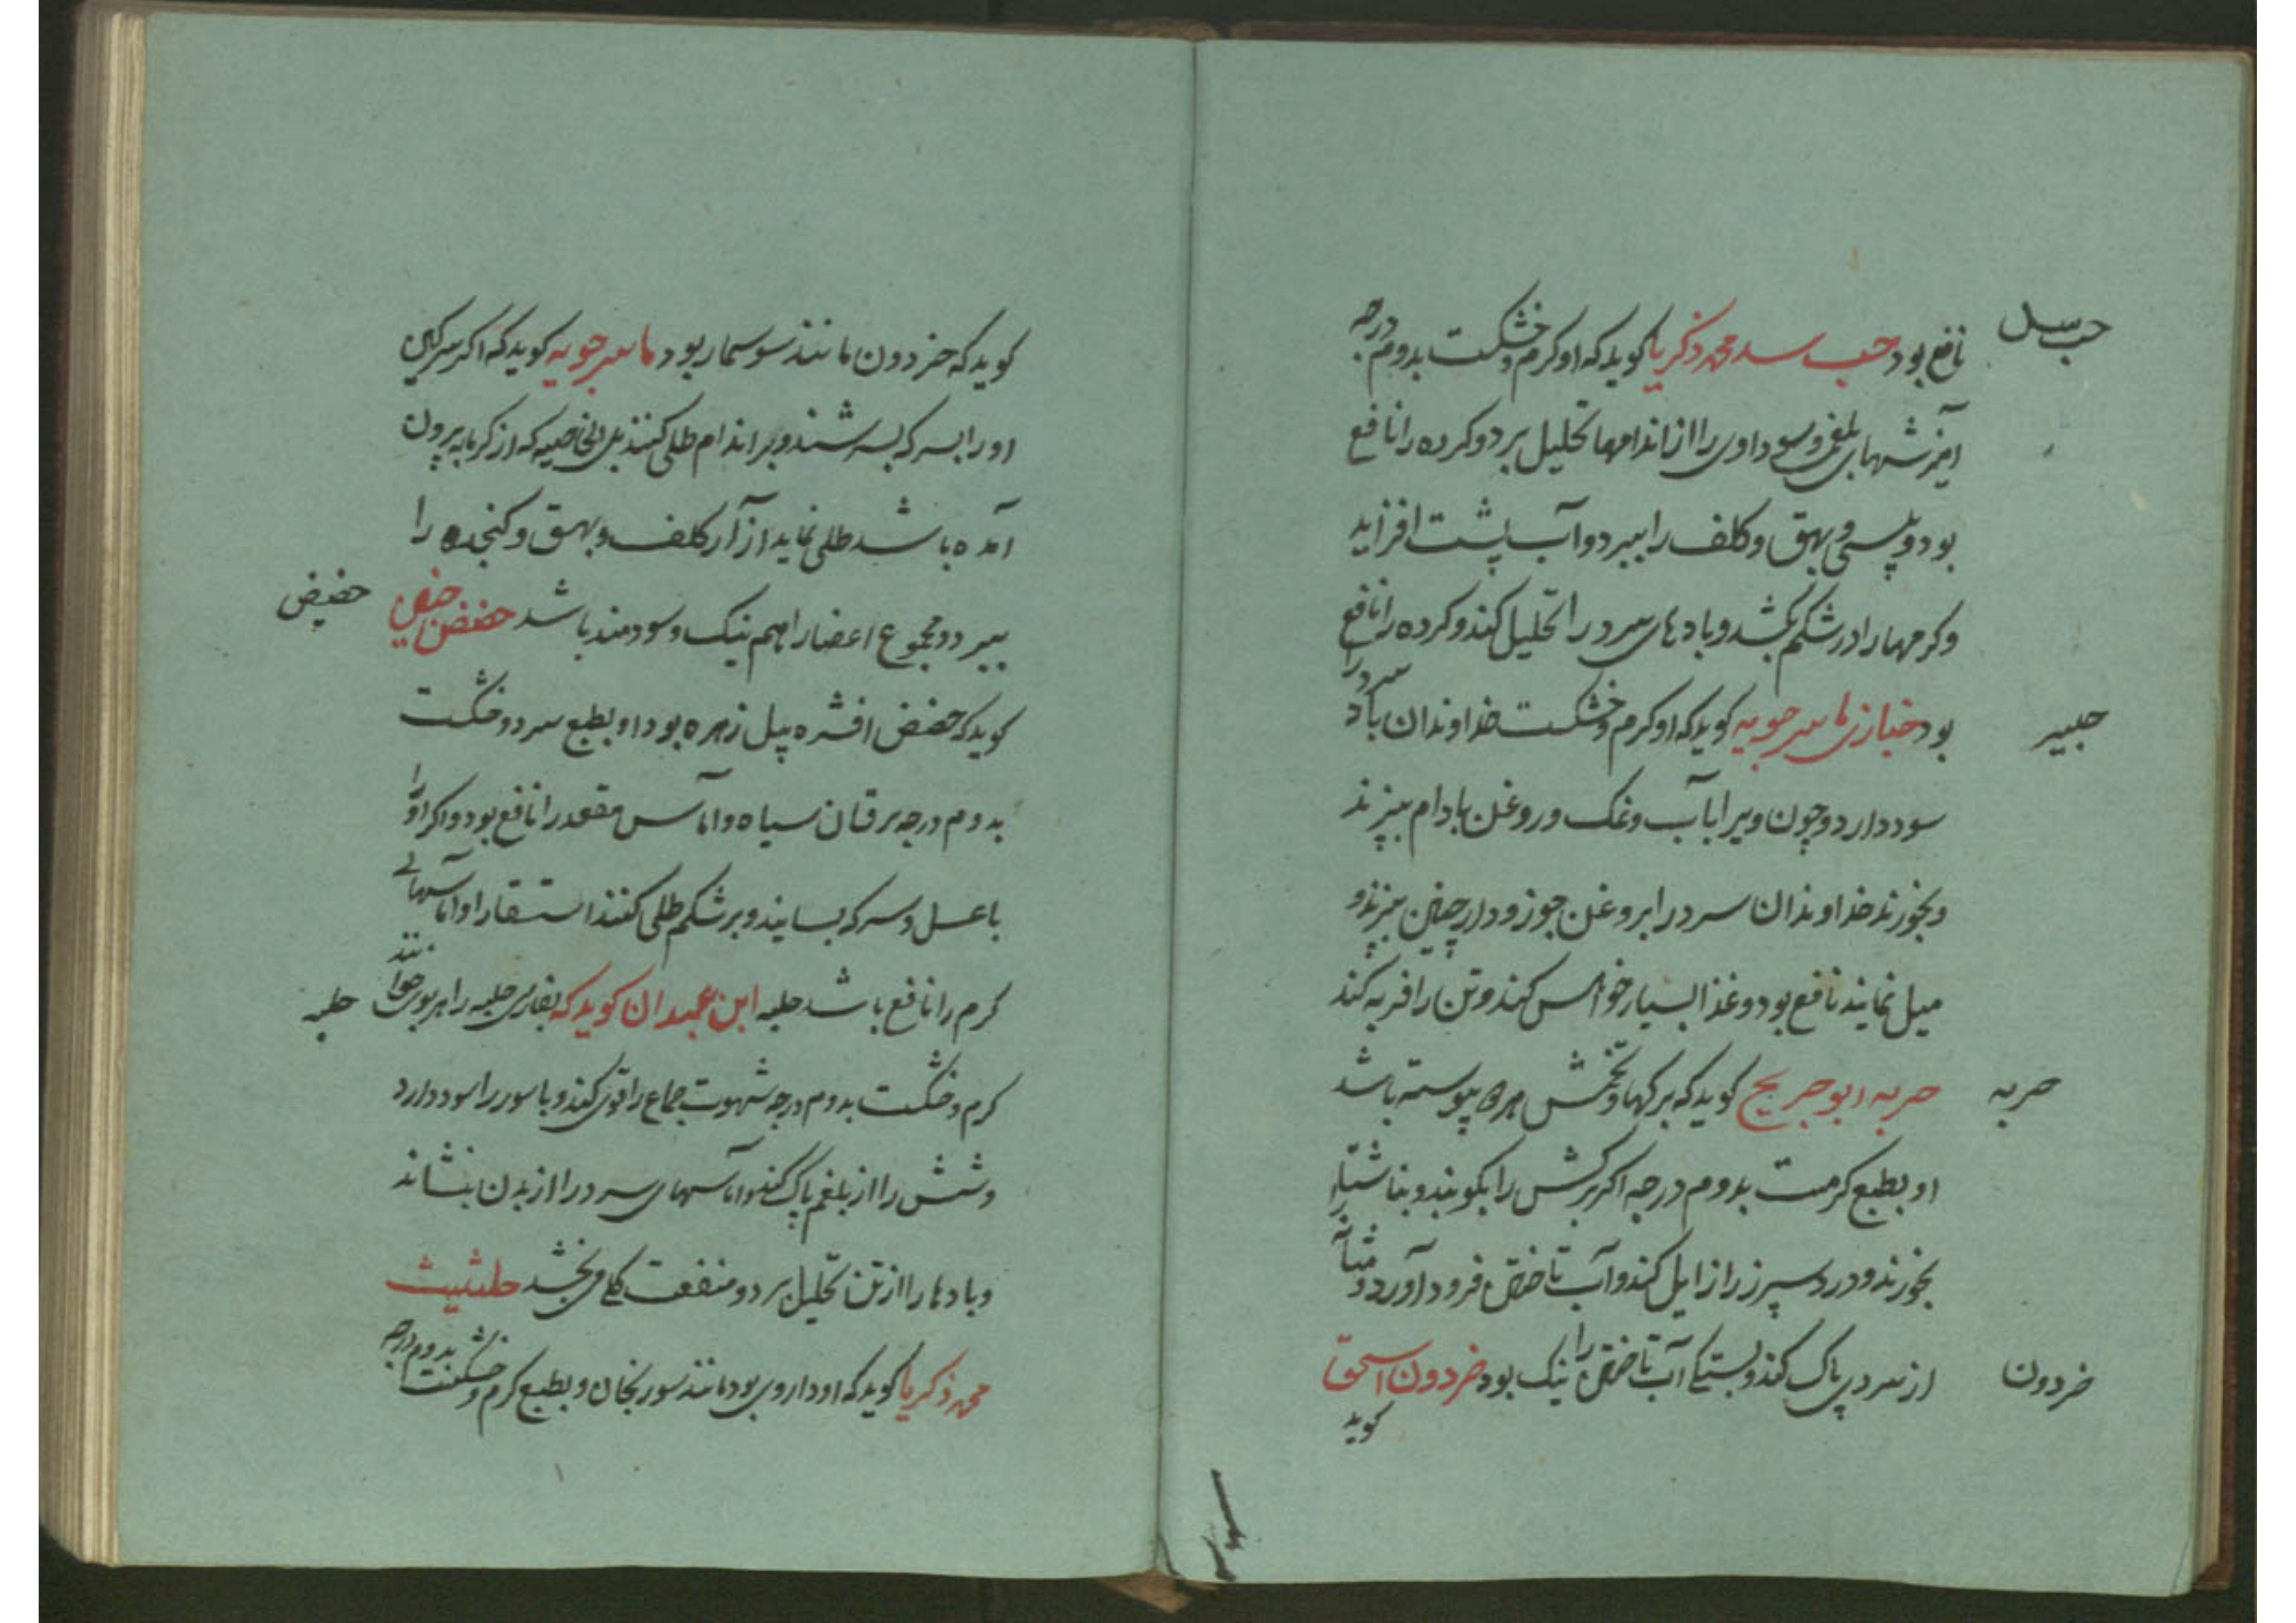 حب سل
نافع بود حب سد محمد ذکریا کوید که او کرم و خشکست بدوم درجه
امیزشهای بلغمی و سوداوی را از اندامها تحلیل برد و کرده را نافع
بود و پیسی و بهق و کلف را ببرد و آب پشت افزاید
و کرمها را در شکم بکشد و بادهای سرد را تحلیل کند و کرده را نافع
جبیر
بود خبازی ماسرجویه کوید که او کرم و خشکست خداوندان باد سرد را
سود دارد و چون ویرا بآب و نمک و روغن بادام بپزند
و بخورند خداوندان سرد را بروغن جوز و دارچین بپزند و
میل نمایند نافع بود و غذا بسیار خواهس کند و تن را فربه کند
حربه
حربه ابو جریح کوید که برکها و تخمش بهم پیوسته باشد
او بطبع کرمست بدوم درجه اکر برکش را بکوبند و بناشتا
بخورند و درد سپرز را زایل کند و آب تاختن فرود آورد و مثانه
خردون
از سردی پاک کند و بستکی آب تاختن را نیک بود خردون اسحق
کوید
کوید که خردون مانند سوسمار بود ماسرجویه کوید که اکر سرکین
او را بسرکه بسرشند و بر اندام طلی کنند بلی الخاصیه که از کرمابه بیرون
آمده باشد طلی نماید از آر کلف و بهق و کنجده را
حضیض
ببرد و مجموع اعضا را همه نیک و سودمند باشد حضض
کوید که حضض افشره پیل زهره بود او بطبع سرد و خشکست
بدوم درجه یرقان سیاه و اماس مقعد را نافع بود و اکر او را
با عسل و سرکه بسایند و بر شکم طلی کنند استسقا را و آماسهائے
حلبه
کرم را نافع باشد حلبه ابن عبدان کوید که بفارسی حلبه را هر بوی خوانند
کرم و خشکست بدوم درجه شهوت جماع را قوی کند و باسور را سود دارد
و شش را از بلغم پاک کند و آماسهای سرد را از بدن بنشاند
و بادها را از تن تحلیل برد و منفعت کلی بخشد حلثیث
محمد ذکریا کوید که او داروی بود مانند سورنجان و بطبع کرم و خشکست بدوم درجه